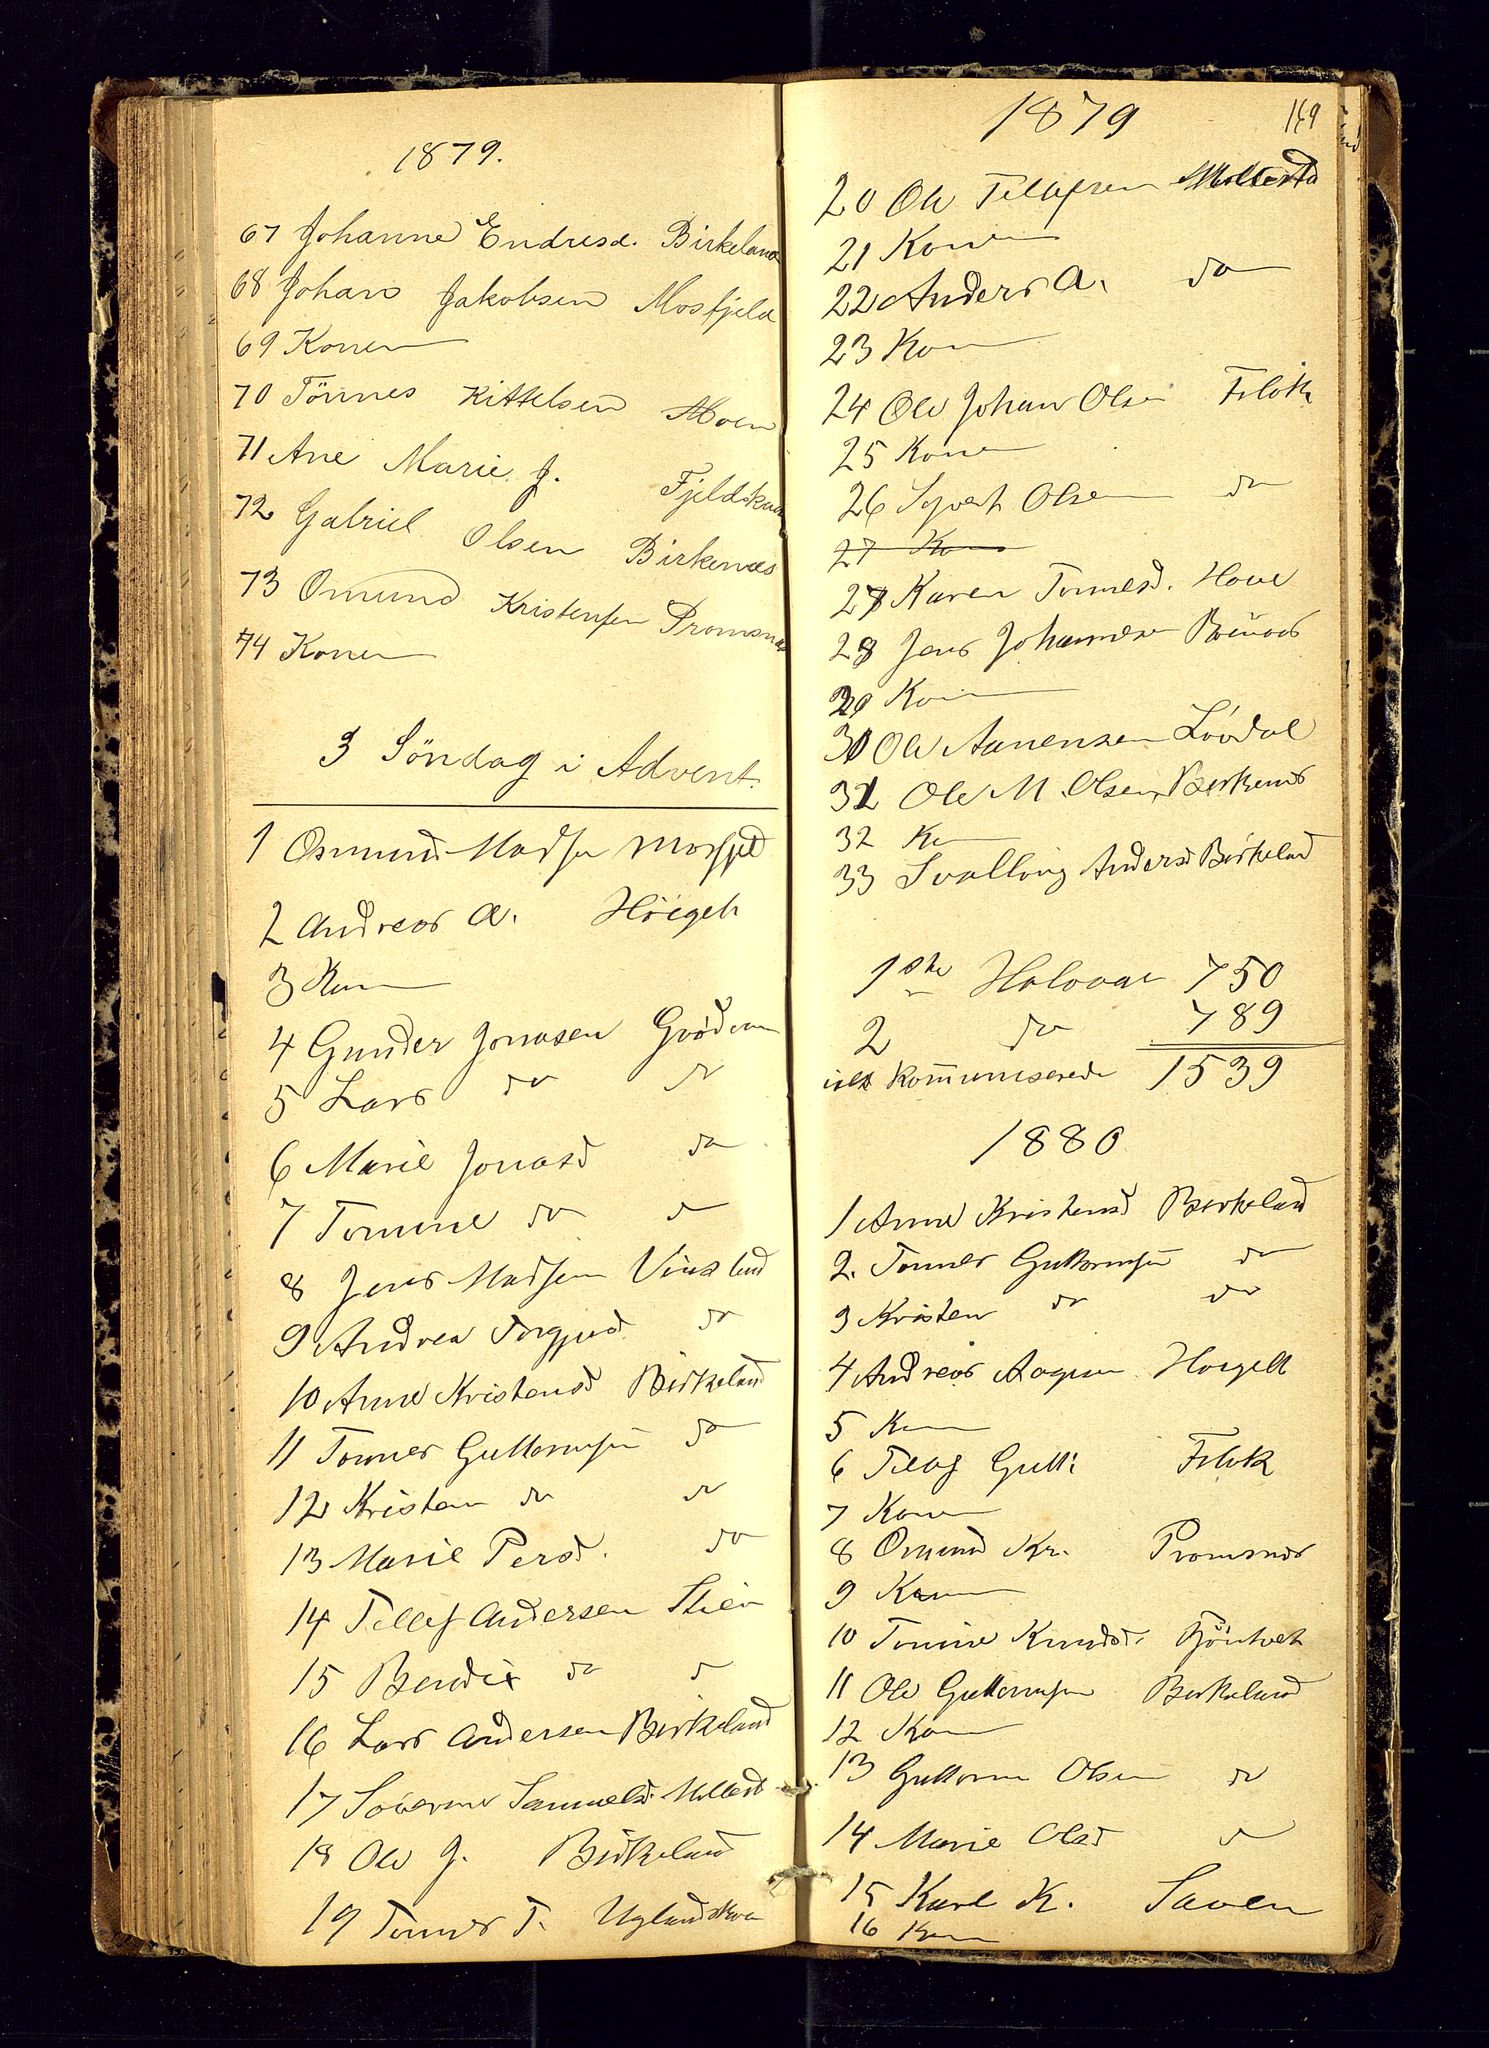 1879.
67 Johanne Endresd. Birkeland
68 Johans Jakobsen Mosfjeld
69 Konen
70 Tönnes Kittelsen Moen
71 Ane Marie J. Fjeldskaar
72 Gabriel Olsen Birkenæs
73 Omund Kristensen Promsnæs
74 Konen
3 Söndag i Advent.
1 Osmund Madsen Mosfjeld
2 Andreas A. Höigelt
3 Kone
4 Gunder Jonasen
5 Lars do do
6 Marie Jonasd do
7 Tomine do do
8 Jens Madsen Vinsland
9 Andrea Torgjusd do
10 Anne Kristensd Birkeland
11 Tønnes Guttormsen do
12 Kristen do do
13 Marie Persd. do
14 Tellef Andersen Stien
15 Bendix do do
16 Lars Andersen Birkeland
17 Samuelsd. Mollestd
18 Ole J. Birkeland
19 Tönnes T. Uglandskaa
1879
169
20 Ole Tellefsen Mollestad
21 Konen
22 Anders A. do
23 Kone
24 Ole Johan Olsen Fløk
25 Konen
26 Syvert Olsen do
27 Kone
27 Karen Tønnesd. Hove
28 Jens Johannesen
29 Kone
30 Ole Aanensen Løvdal
31 Ole M. Olsen Birkenes
32 Kone
33 Svallaug Andersd Birkeland
1ste Halvaar 750
2 do 789
ialt Kommuniserede 1539
1880
1 Anne Kristensd Birkeland
2. Tønnes Guttormsen do
3 Kristen do do
4 Andreas Aagesen Høigelt
5 Kone
6 Tellef Gutt: Fløk
7 Kone
8 Omund Kr. Promsnes
9 Kone
10 Tomine Knudsd.
11 Ole Guttormsen Birkeland
12 Kone
13 Guttorm Olsen do
14 Marie Olsd do
15 Karl K. Saven
16 Kone